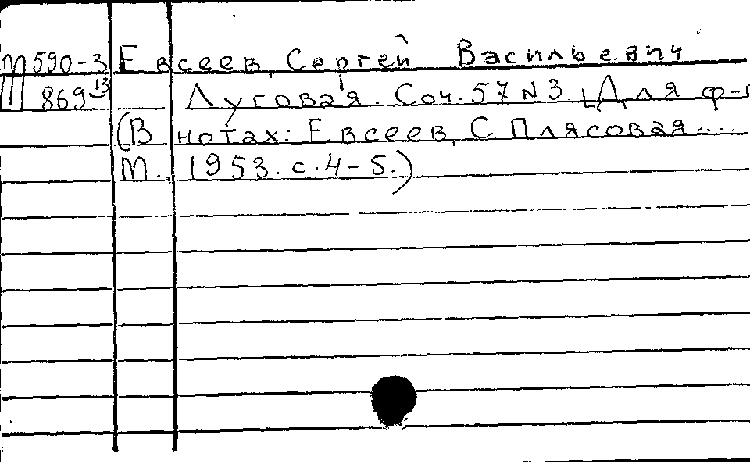 М590-3 Евсеев, Сергей Васильевич
П 869¹³ Луговая. Соч. 57 №3 [Для ф-п
(В нотах: Евсеев, С Плясовая...
М. 1953. с. 4-5.)